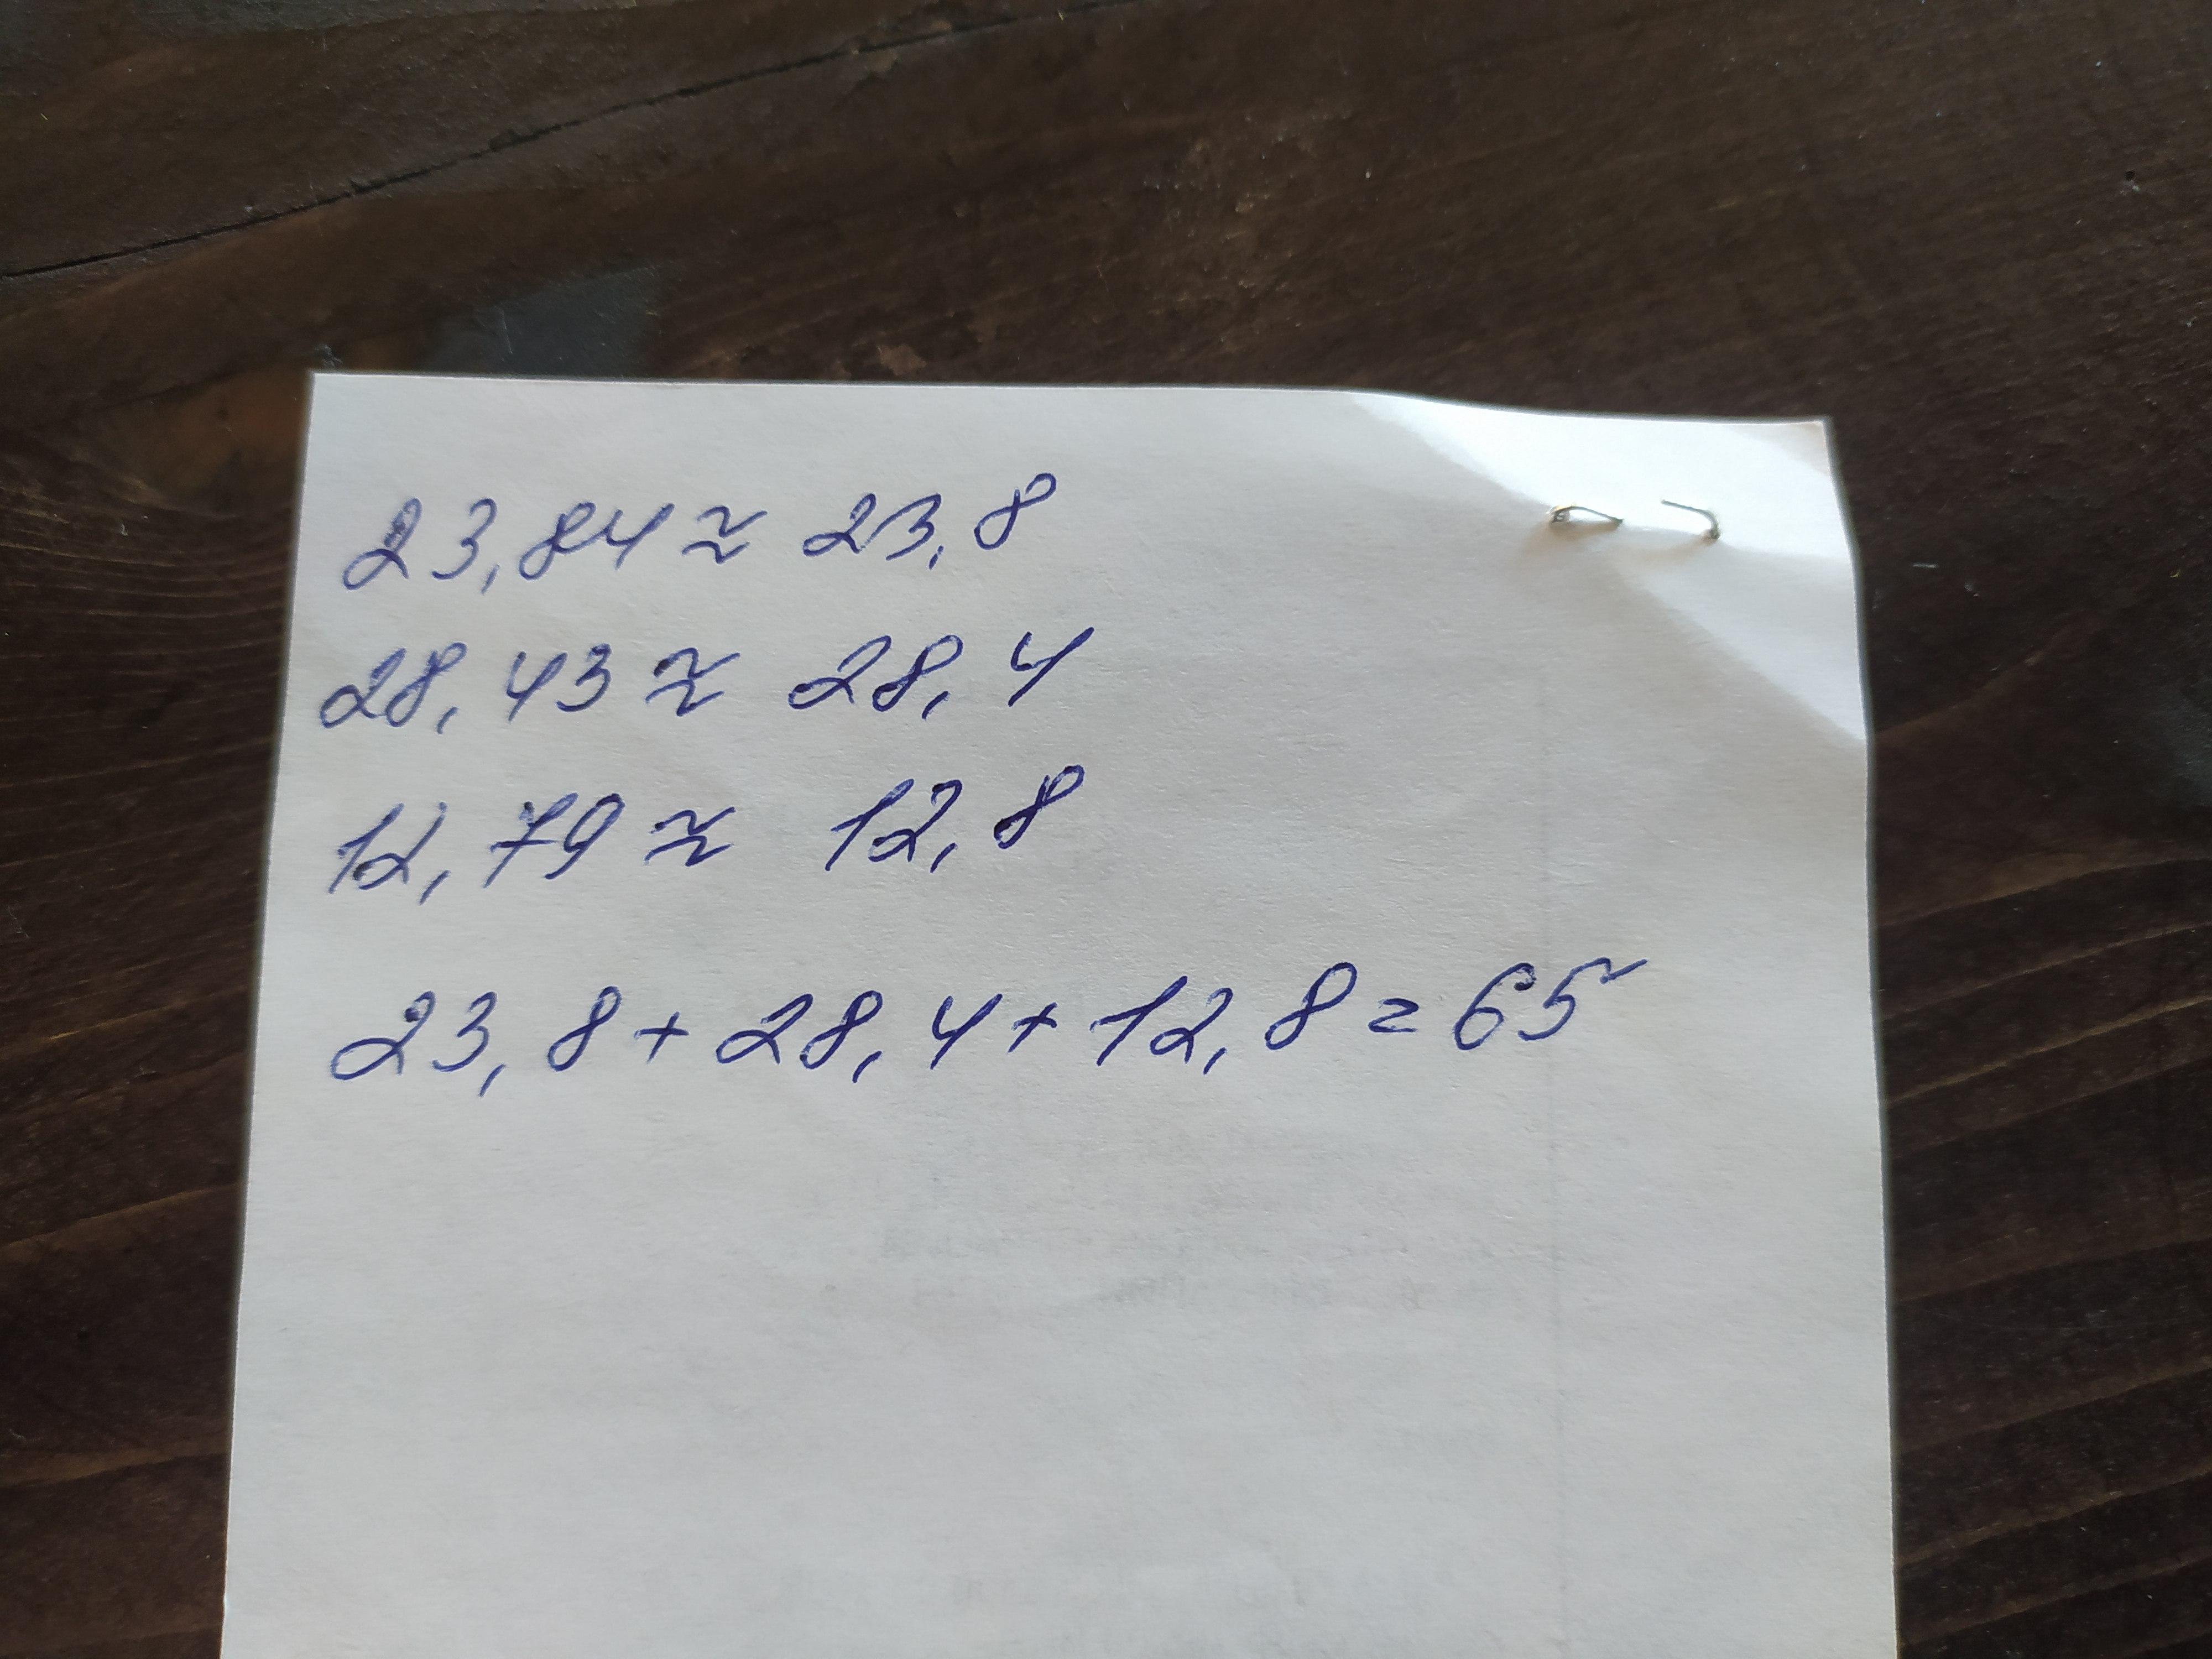 23,84 ≈ 23,8
28,43 ≈ 28,4
12,79 ≈ 12,8
23,8 + 28,4 + 12,8 = 65